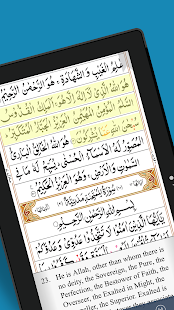 عٰلِمُ الْغَيْبِ وَالشَّهَادَةِ ۚ هُوَ الرَّحْمٰنُ الرَّحِيْمُ
هُوَ اللّٰهُ الَّذِيْ لَاۤ اِلٰهَ اِلَّا هُوَ ۚ اَلْمَلِكُ الْقُدُّوْسُ
السَّلٰمُ الْمُؤْمِنُ الْمُهَيْمِنُ الْعَزِيْزُ الْجَبَّارُ الْمُتَكَبِّرُ ؕ
سُبْحٰنَ اللّٰهِ عَمَّا يُشْرِكُوْنَ هُوَ اللّٰهُ الْخَالِقُ الْبَارِئُ
الْمُصَوِّرُ لَهُ الْاَسْمَآءُ الْحُسْنٰى ؕ يُسَبِّحُ لَهٗ مَا فِي
السَّمٰوٰتِ وَالْاَرْضِ ۚ وَهُوَ الْعَزِيْزُ الْحَكِيْمُ
بِسْمِ اللّٰهِ الرَّحْمٰنِ الرَّحِيْمِ
يٰۤاَيُّهَا الَّذِيْنَ اٰمَنُوْا لَا تَتَّخِذُوْا
23. He is Allah, other than whom there is
no deity, the Sovereign, the Pure, the
Perfection, the Bestower of Faith, the
Overseer, the Exalted in Might, the
the Superior. Exalted